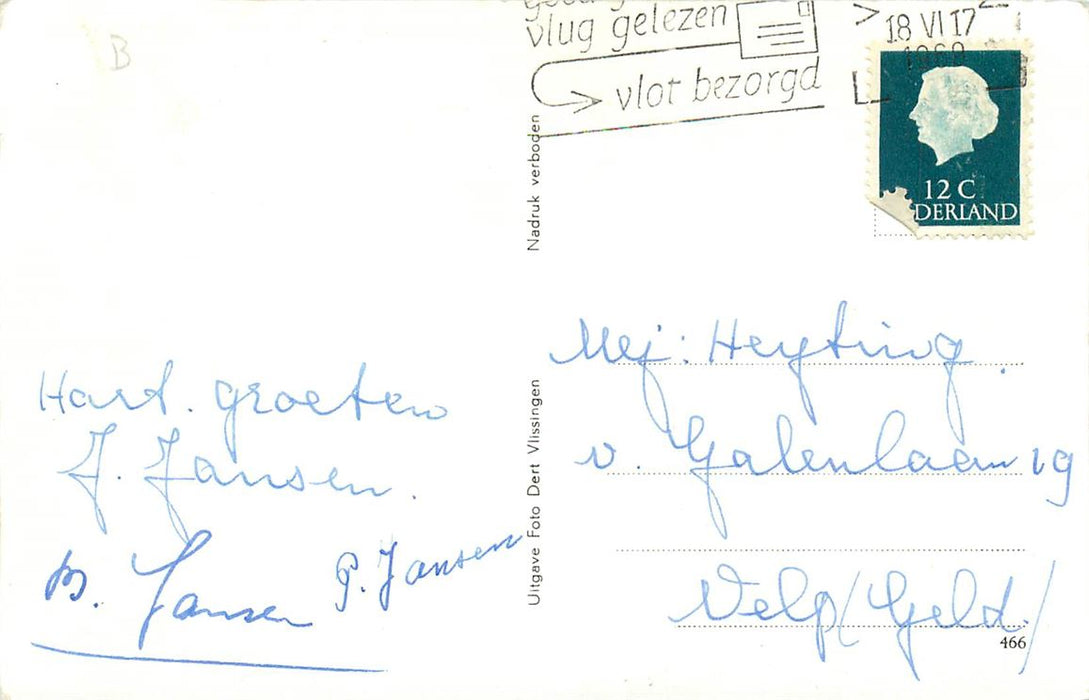 B
vlug gelezen
vlot bezorgd
18 VI 17
12 C
DERLAND
Nadruk verboden
Uitgave Foto Dert Vlissingen
Hart. groeten
J. Jansen.
B. Jansen
P. Jansen
Mej: Heyting.
v. Galenlaan 19
Velp (Geld.)
466